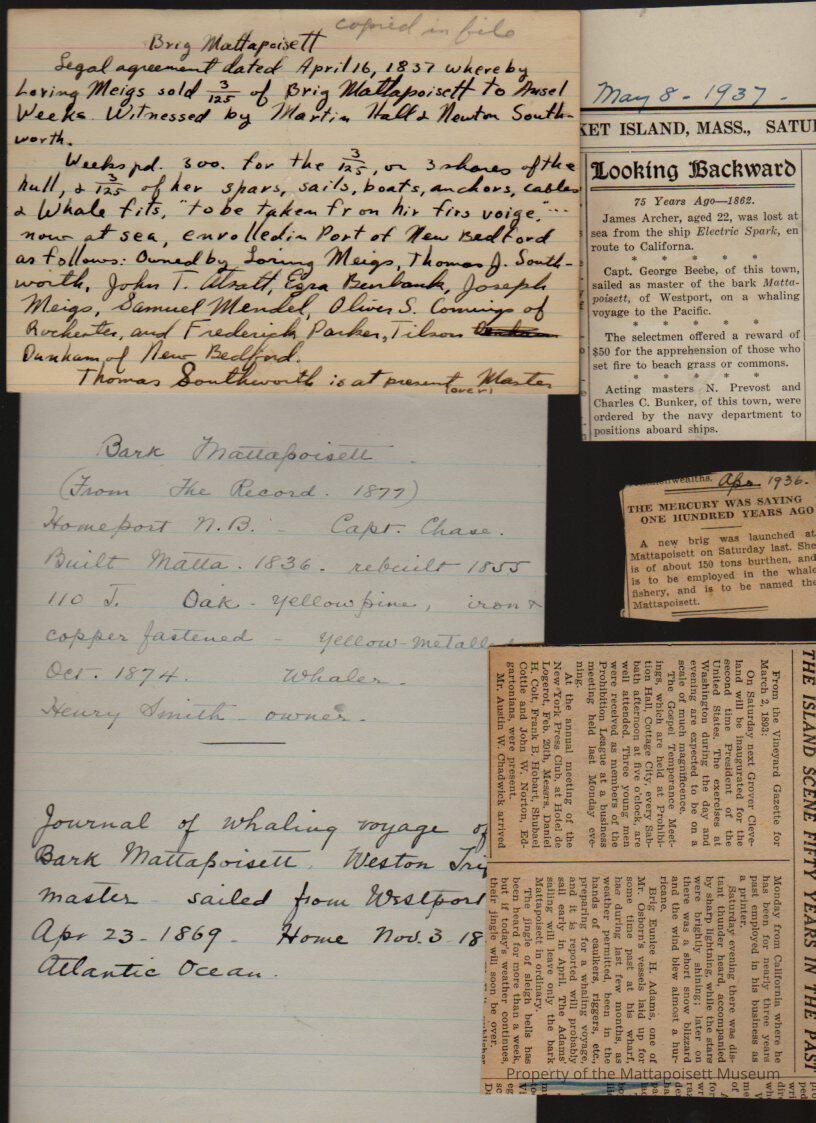 copied in file
Brig Mattapoisett
Legal agreement dated April 16, 1837 whereby
Loring Meigs sold 3/125 of Brig Mattapoisett to Ansel
Weeks. Witnessed by Martin Hall & Newton South-
worth.
Weeks pd. 300. for the 3/125, or 3 shares of the
hull, & 3/125 of her spars, sails, boats, anchors, cables
& Whale fits, "to be taken from hir firs voige,"...
now at sea, enrolled in Port of New Bedford
as follows: Owned by Loring Meigs, Thomas J. South-
worth, John T. Atsatt, Ezra Burbank, Joseph
Meigs, Samuel Mendel, Oliver S. Comings of
Rochester, and Frederick Parker, Tilson
Dunham of New Bedford.
Thomas Southworth is at present Master
(over)
May 8 - 1937 -
KET ISLAND, MASS., SATU
Looking Backward
75 Years Ago—1862.
James Archer, aged 22, was lost at
sea from the ship Electric Spark, en
route to Californa.
* * * * *
Capt. George Beebe, of this town,
sailed as master of the bark Matta-
poisett, of Westport, on a whaling
voyage to the Pacific.
* * * * *
The selectmen offered a reward of
$50 for the apprehension of those who
set fire to beach grass or commons.
* * * * *
Acting masters N. Prevost and
Charles C. Bunker, of this town, were
ordered by the navy department to
positions aboard ships.
Apr 1936.
THE MERCURY WAS SAYING
ONE HUNDRED YEARS AGO
A new brig was launched at
Mattapoisett on Saturday last. She
is of about 150 tons burthen, and
is to be employed in the whale
fishery, and is to be named the
Mattapoisett.
Bark Mattapoisett
(From The Record. 1877)
Homeport N.B. - Capt. Chase.
Built Matta. 1836. rebuilt 1855
110 T. Oak - Yellow pine, iron &
copper fastened - Yellow-metalled
Oct. 1874. Whaler.
Henry Smith - owner.
Journal of whaling voyage of
Bark Mattapoisett. Weston
master sailed from Westport
Apr 23 - 1869 - Home Nov. 3 - 18
Atlantic Ocean.
THE ISLAND SCENE FIFTY YEARS IN THE PAST
From the Vineyard Gazette for
March 2, 1893:
On Saturday next Grover Cleve-
land will be inaugurated for the
second time President of the
United States. The exercises at
Washington during the day and
evening are expected to be on a
scale of much magnificence.
The Gospel Temperance Meet-
ings, which are held at Prohibi-
tion Hall, Cottage City, every Sab-
bath afternoon at five o'clock, are
well attended. Three young men
were received as members of the
Prohibition League at a business
meeting held last Monday eve-
ning.
At the annual meeting of the
New York Press Club, at Hotel de
Logerot, Feb. 20th, Messrs. Daniel
H. Colt, Frank B. Hobart, Shubael
Cottle and John W. Norton, Ed-
gartonians, were present.
Mr. Austin W. Chadwick arrived
Monday from California where he
has been for nearly three years
past employed in his business as
a printer.
Saturday evening there was dis-
tant thunder heard, accompanied
by sharp lightning, while the stars
were brightly shining; later on
there was a short snow blizzard
and the wind blew almost a hur-
ricane.
Brig Eunice H. Adams, one of
Mr. Osborn's vessels laid up for
some time past at his wharf,
has during last few months, as
weather permitted, been in the
hands of caulkers, riggers, etc.,
preparing for a whaling voyage,
and it is reported will probably
sail early in April. The Adams'
sailing will leave only the bark
Mattapoisett in ordinary.
The jingle of sleigh bells has
been heard for more than a week,
but if today's weather continues,
their jingle will soon be over.
Property of the Mattapoisett Museum